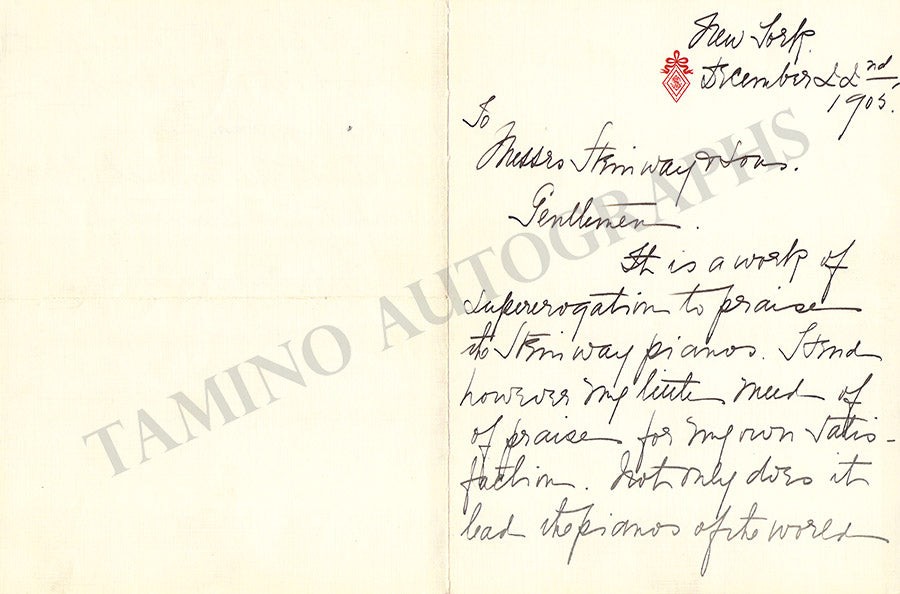 New York.
December 22nd,
1905.
To
Messrs Steinway & Sons.
Gentlemen.
It is a work of
supererogation to praise
the Steinway pianos. I send
however my little meed of
of praise for my own satis-
faction. Not only does it
lead the pianos of the world
TAMINO AUTOGRAPHS